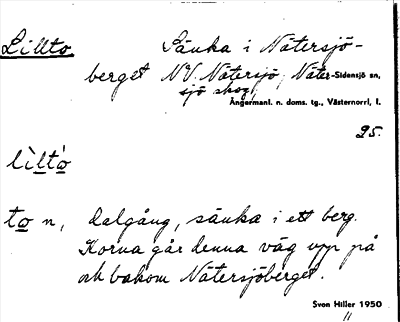 Lillto Sänka i Nätersjö-
berget NV. Nätersjö, Näter-Sidensjö sn,
sjö skog,
Ångermanl. n. doms. tg., Västernorrl, l.
25.
lìltò
to n, dalgång, sänka i ett berg.
Korna går denna väg upp på
och bakom Nätersjöberget.
Sven Hiller 1950